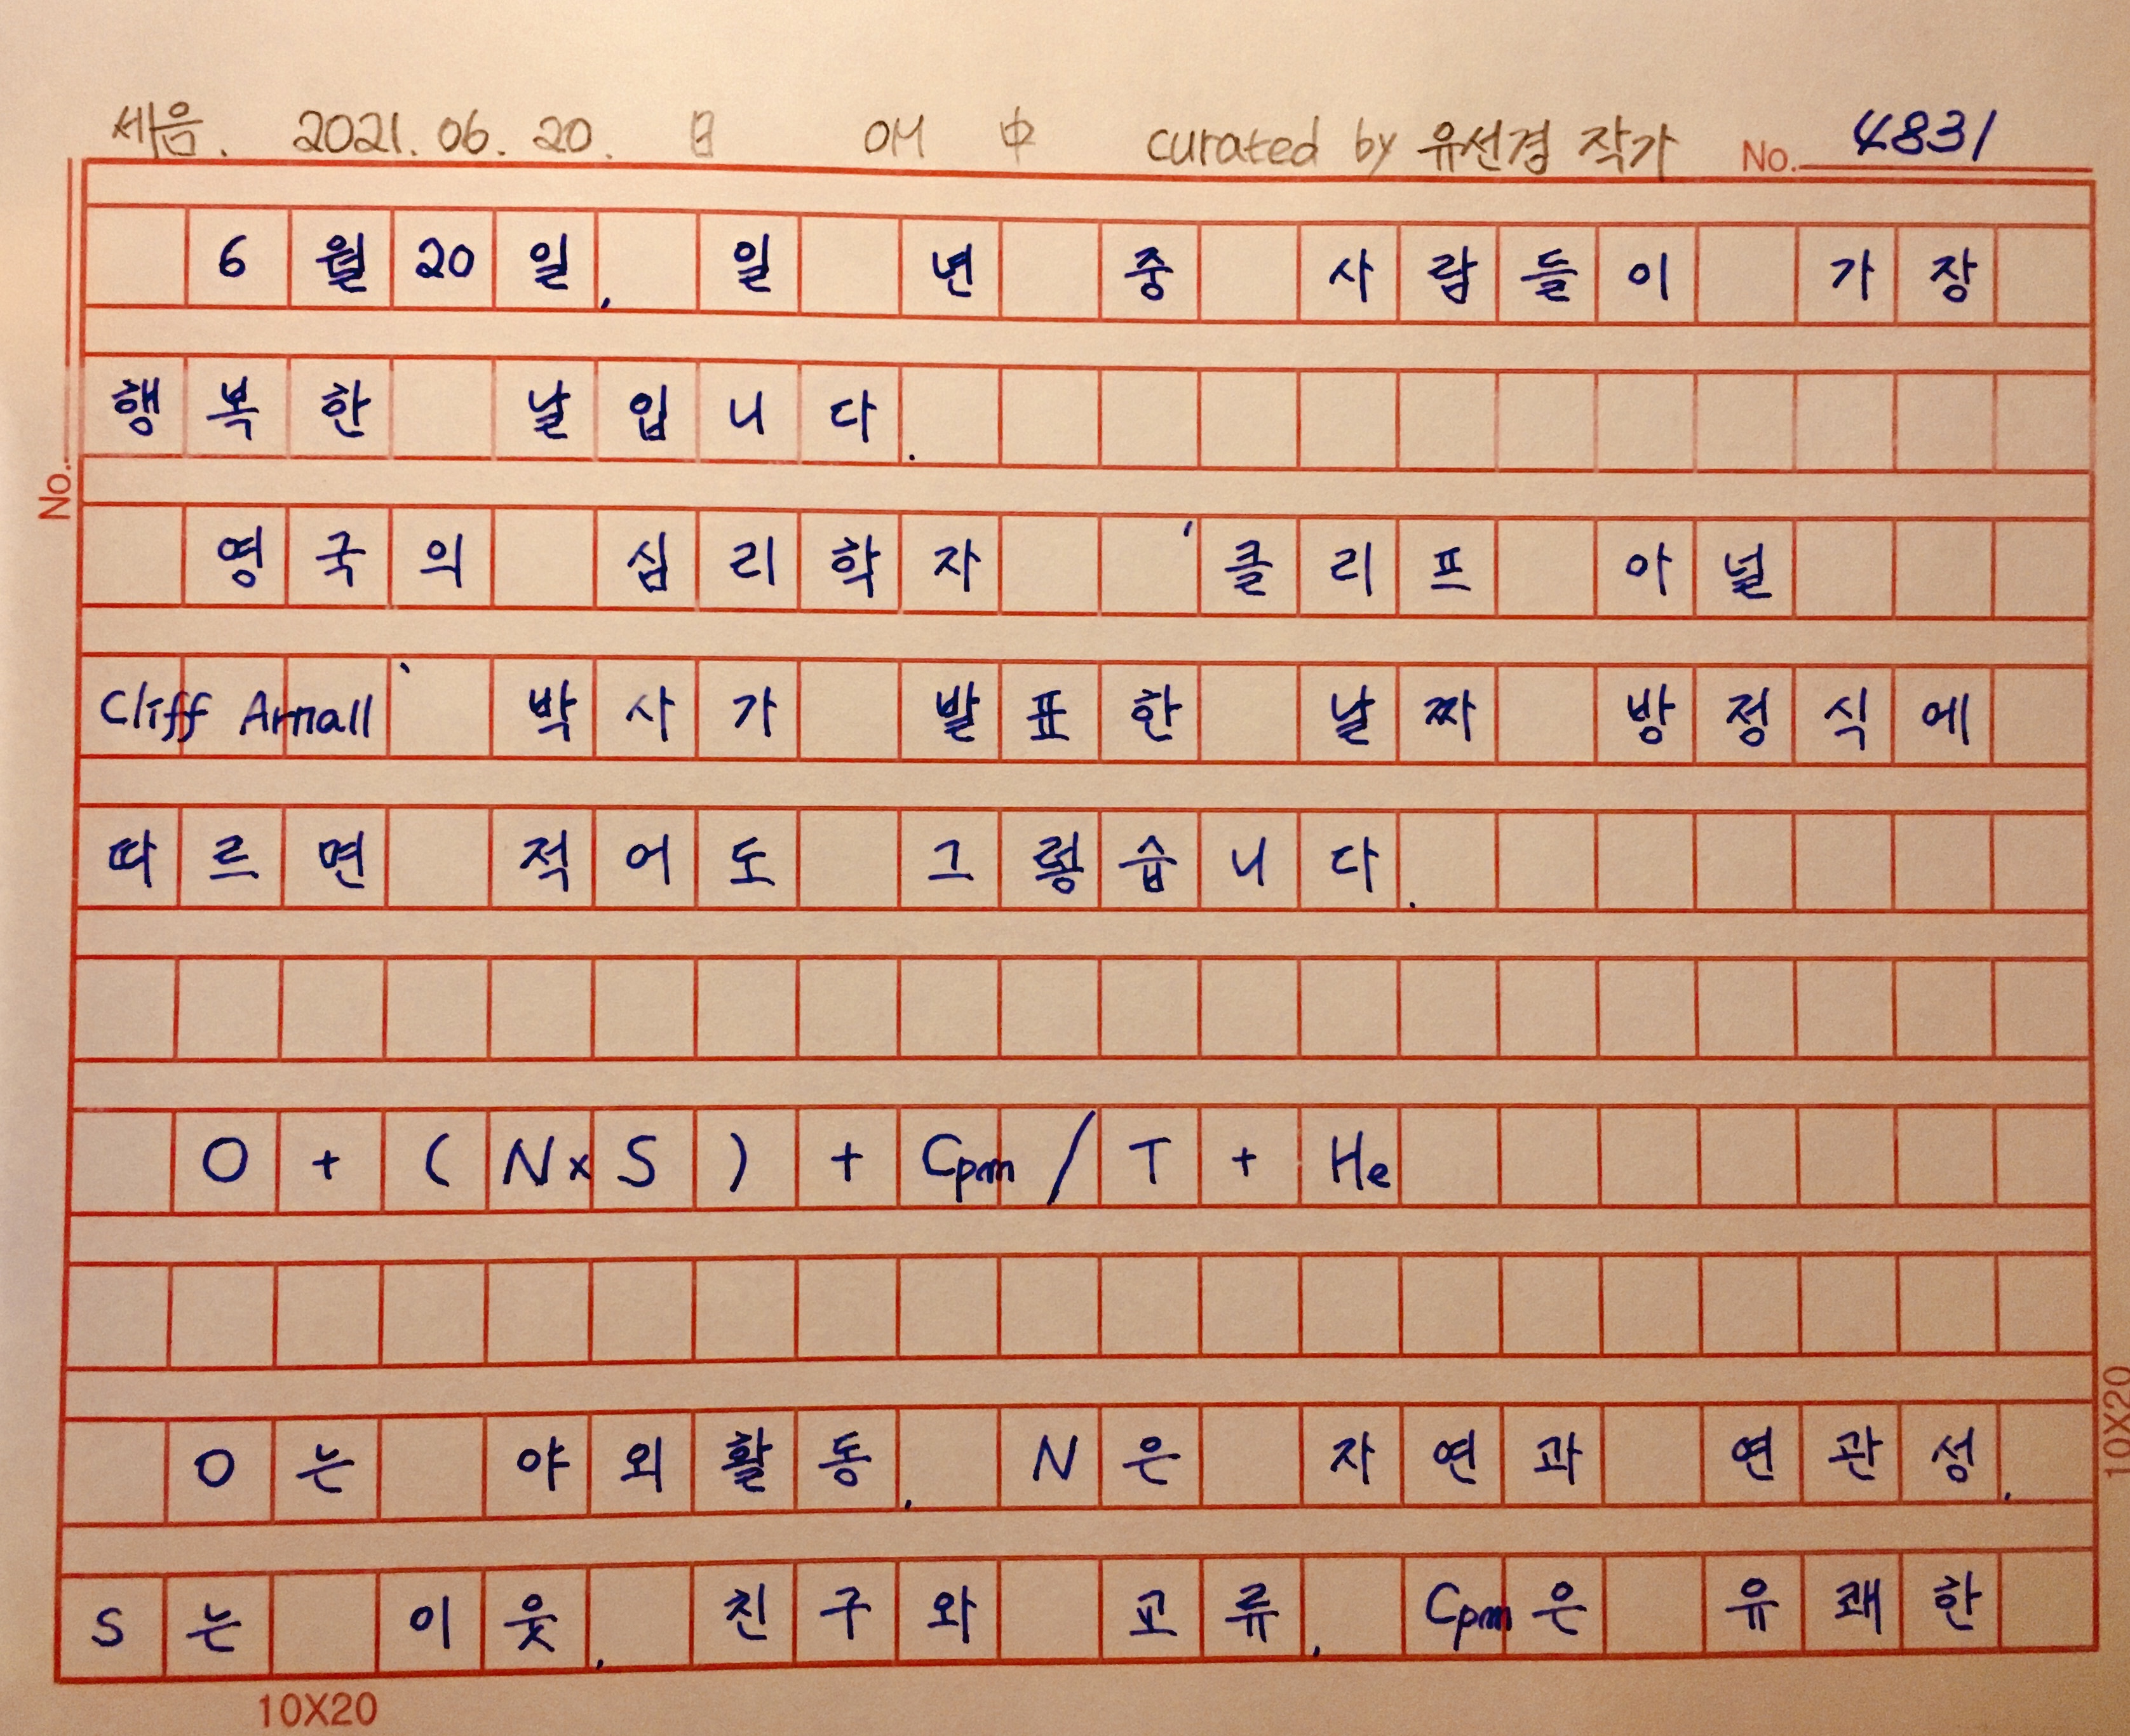 세음. 2021. 06. 20. 日 OM 中 curated by 유선경 작가 No. 4831
6월 20일, 일 년 중 사람들이 가장
행복한 날입니다.
No.
영국의 심리학자 '클리프 아널
Cliff Arnall' 박사가 발표한 날짜 방정식에
따르면 적어도 그렇습니다.
O + (N×S) + Cpm / T + He
O는 야외활동, N은 자연과 연관성,
S는 이웃, 친구와 교류, Cpm은 유쾌한
10X20
10X20